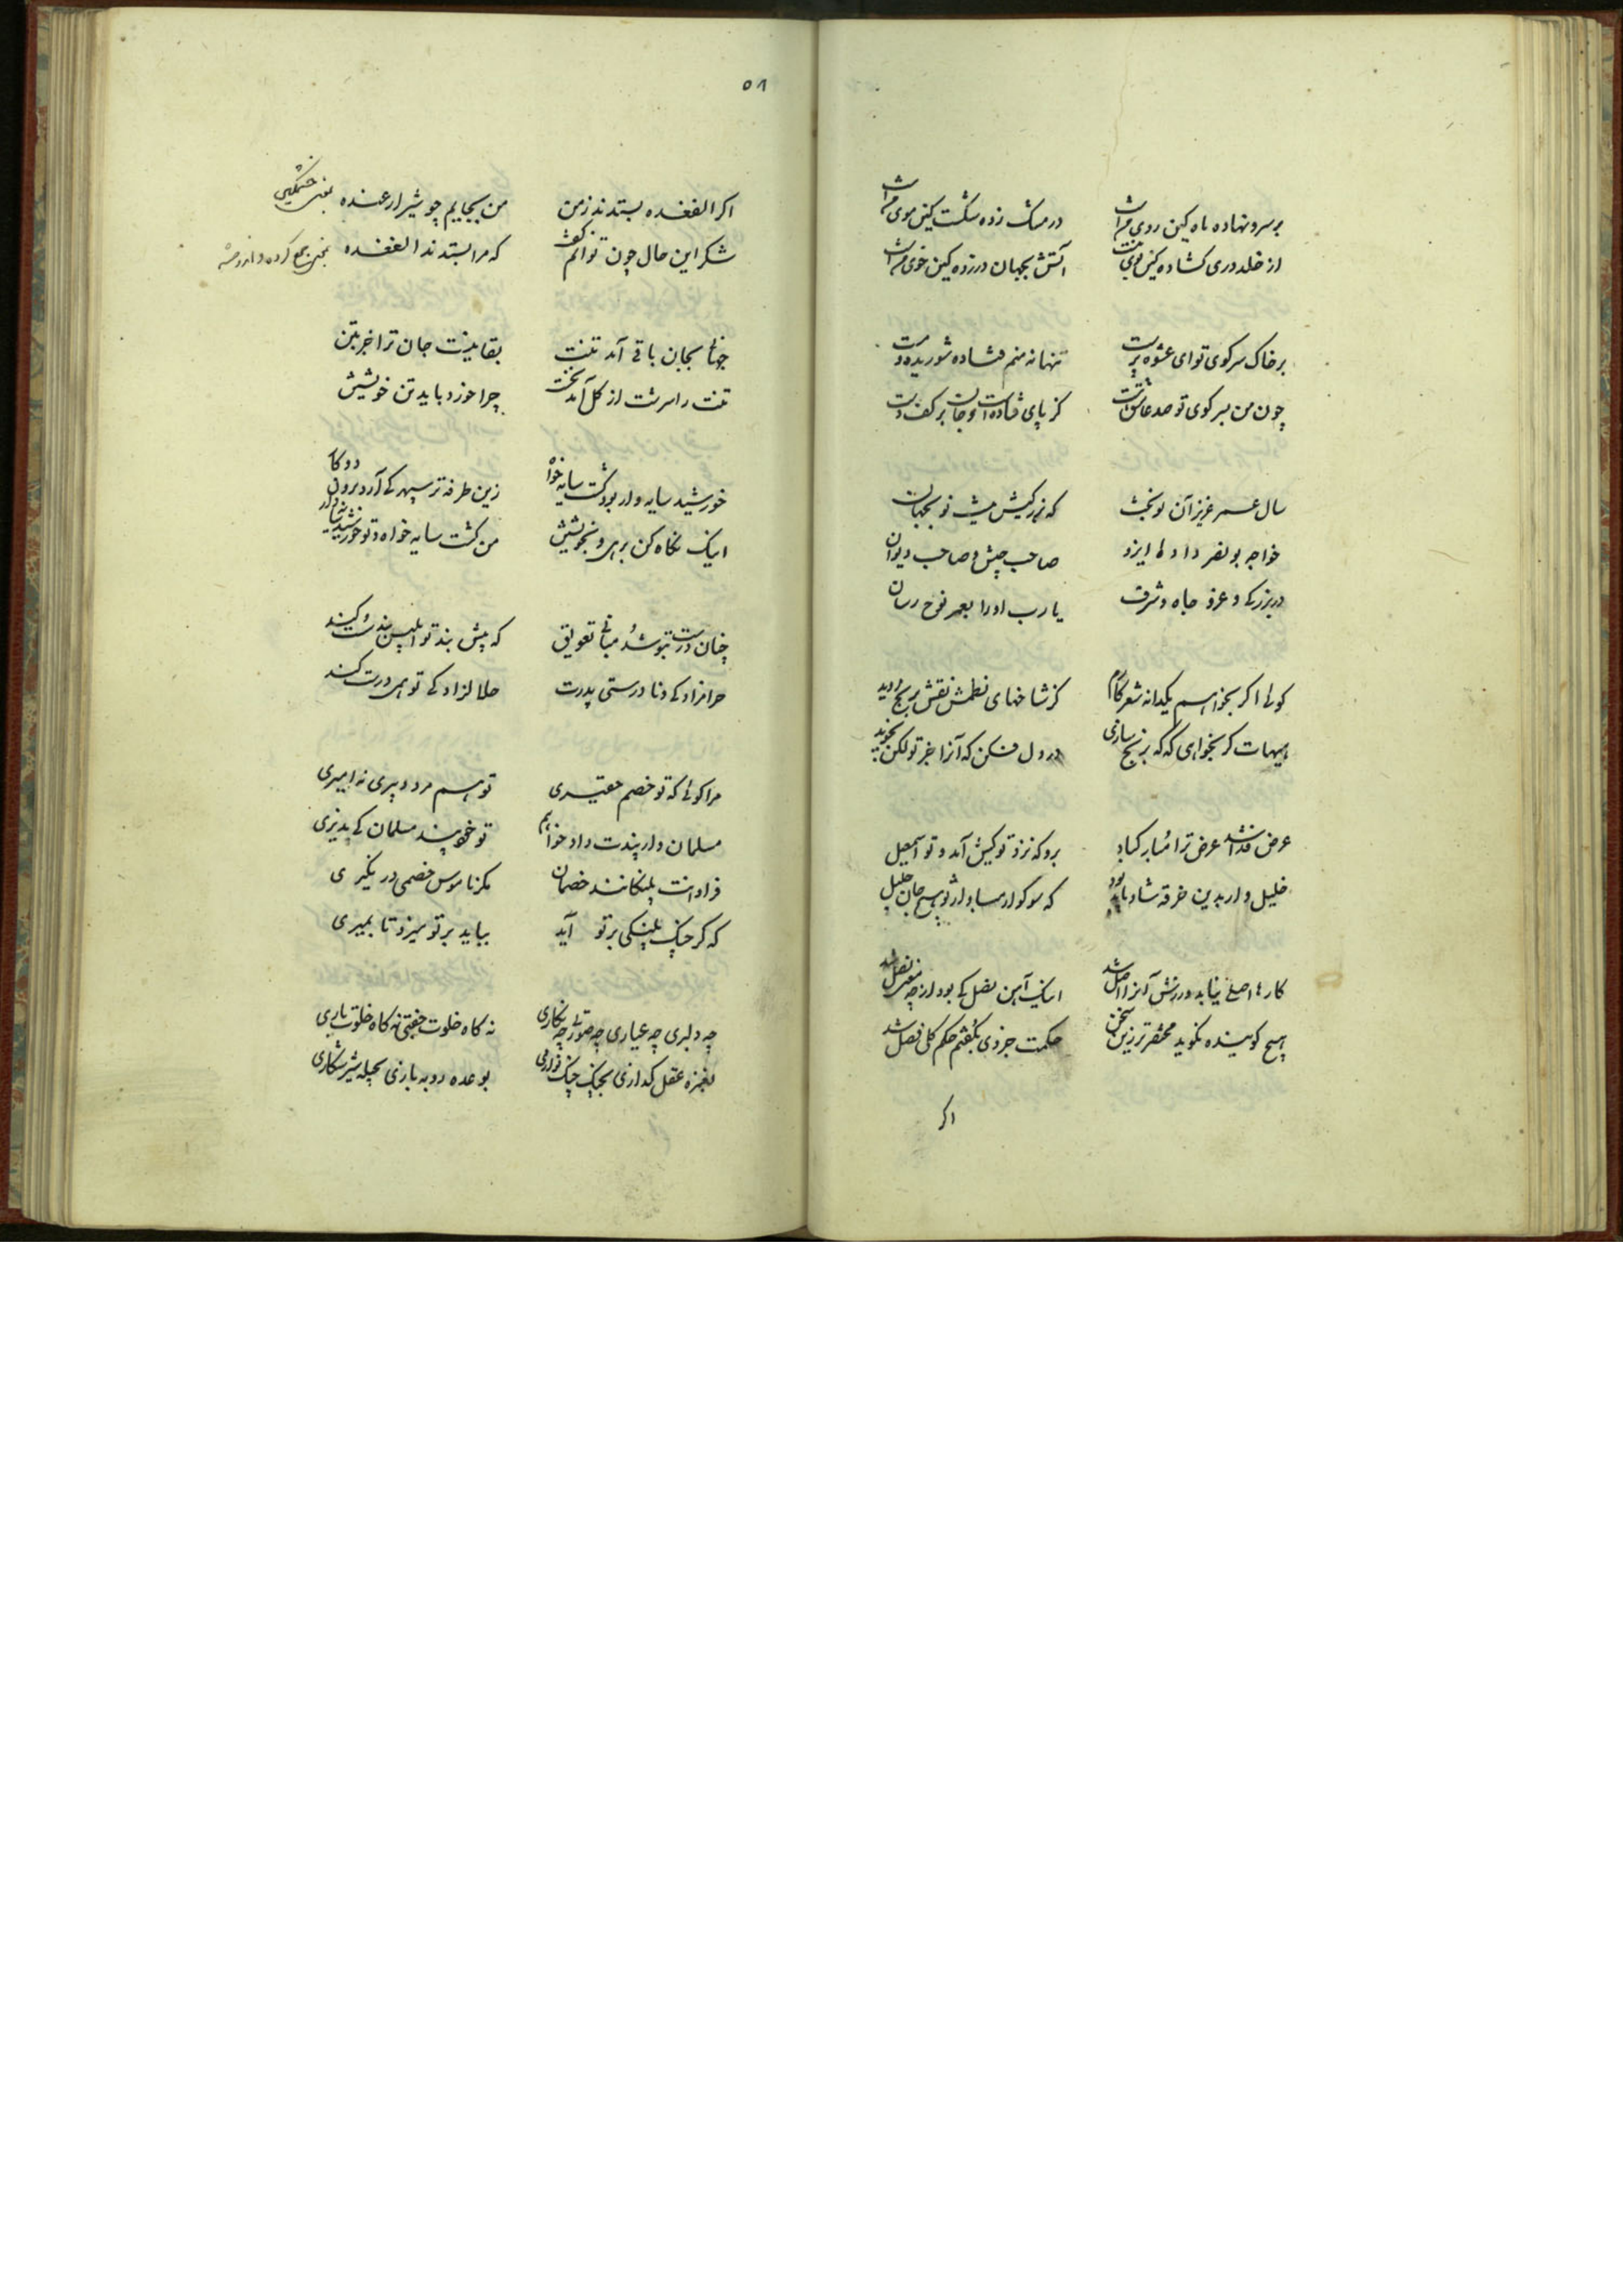 بر سرو نهاده ماه کین روی مراست
در مشک زده شکست کین موی مراست
از خلد دری کشاده کین
آتش بجهان در زده کین خوی مراست
بر خاک سر کوی تو ای عشوه پرست
تنها نه منم فتاده شوریده و مست
چون من بسر کوی تو صد عاشق هست
کز پای فتاده است و جان بر کف دست
سال عمر عزیز آن نوبخت
که بجهان
خواجه بونصر داد ما ایزد
صاحب جیش و صاحب دیوان
در بزرکی و عز و جاه و شرف
یا رب او را بعمر نوح رسان
کوئی اگر بخواهم یکدانه شعر
کز شاخهای نظمش نقش بریخ
هیهات کر بخواهی که که بر یخ سازی
در دل فکن که آنرا جز تو
عرض فدا شد عرض ترا مبارکباد
برو که نزد تو کیش آمد و تو اسمعیل
خلیل وار بدین خرقه شاد
که سوگوار مباد از تو هیچ جان خلیل
کارها اصلی نیابد ورزش آنرا اصل شد
اینک آیین فضل کی بود ار چه
هیچ گوینده نگوید مختصرتر زین سخن
حکمت جزوی بگفتم حکم کلی فصل شد
اکر
٥٨
اکر الفغده بستدند ز من
من بجایم چو شیر ارغنده
بمعنی خشمگین
شکر این حال چون توانم کفت
که مرا بستدند الفغده
بمعنی جمع کرده و اندوخته
چنانکه بجان باقی آمد تنت
بقا نیست جان ترا جز بتن
تنت را سرشت از کل آمد نخست
چرا خورد باید تن خویشتن
خورشید سایه دار بود کشت سایه خواه
زین طرفه تر سپهر کی آرد برون دو کار
اینک نکاه کن برهی و بخویشتن
من کشت سایه خواه و تو خورشید سایه دار
چنان درست بتو شد مبانی تعویق
که پیش بند تو ابلیس بند سست کند
حرامزادکی و نادرستی پدرت
حلالزادکی تو همی درست کند
مرا کوئی که تو خصم حقیری
تو هم مرد دبیری نه امیری
مسلمان وار پندت داد خواهم
تو خود پند مسلمان کی پذیری
فراوانت پلنکانند خصمان
مکر با موش خصمی در نکیری
که کر چنک پلنکی بر تو آید
بیاید بر تو میزد تا بمیری
چه دلبری چه عیاری چه صورتی چه نکاری
نه کاه خلوت جفتی نه کاه خلوت یاری
بغمزه عقل کدازی بچنک چنک نوازی
بوعده روبه بازی بحیله شیر شکاری